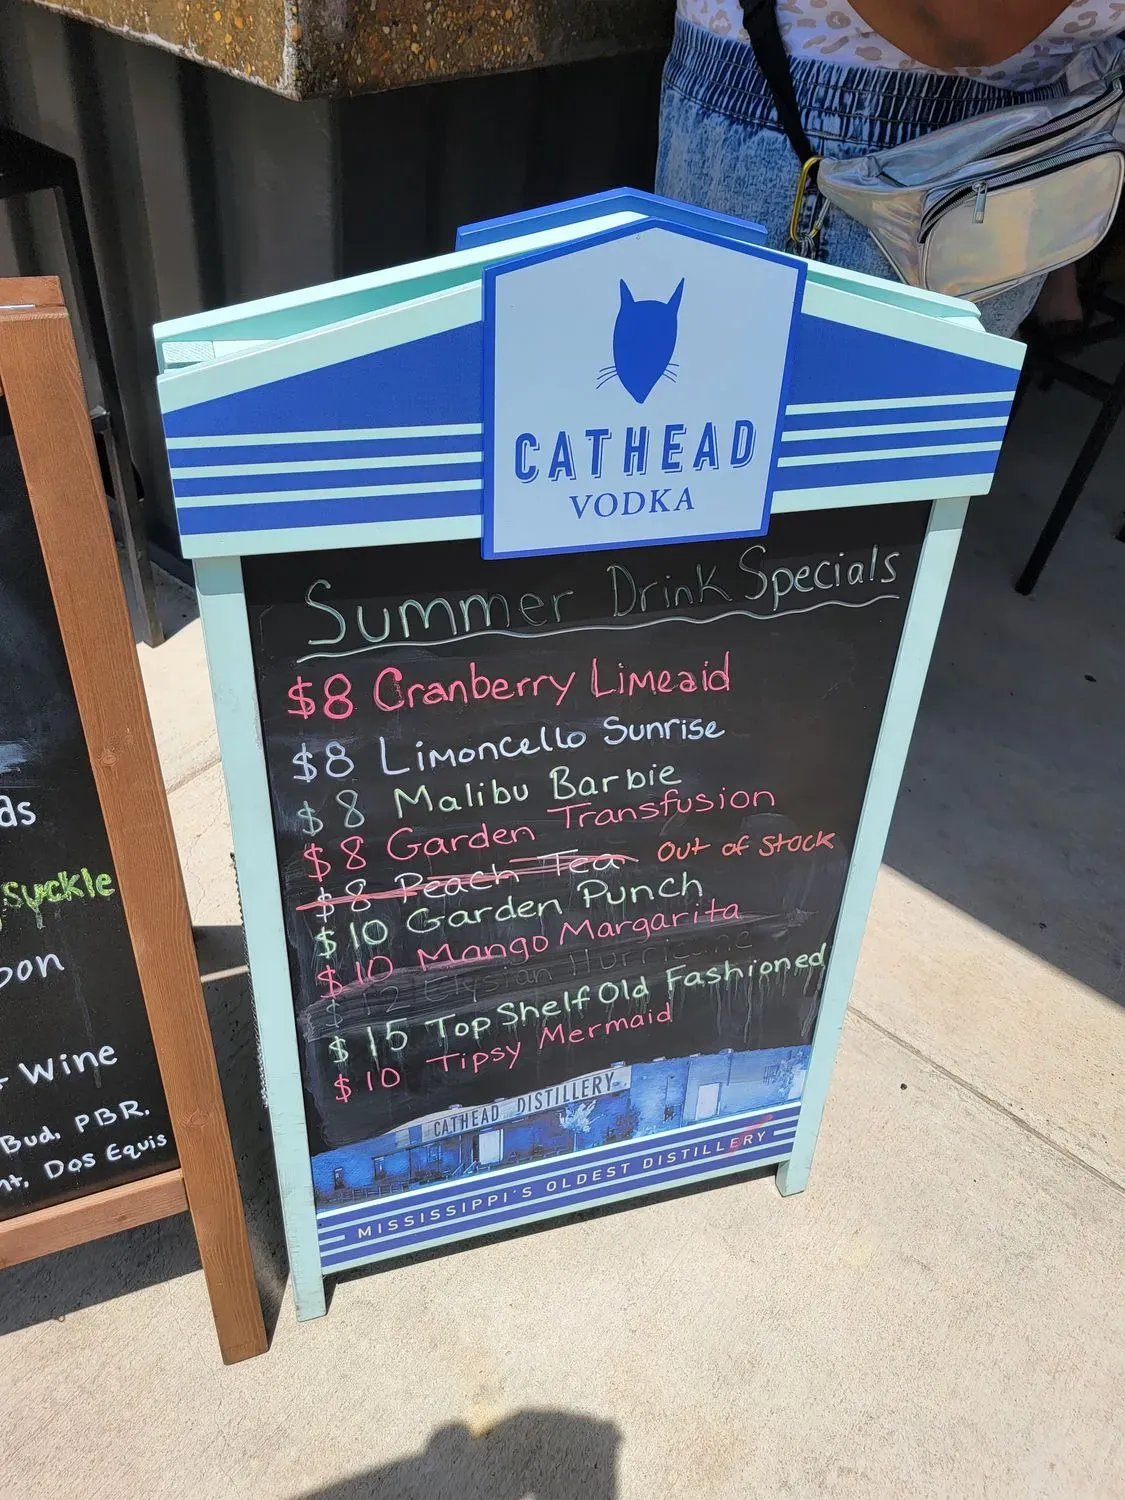 CATHEAD
VODKA
Summer Drink Specials
$8 Cranberry Limeaid
$8 Limoncello Sunrise
$8 Malibu Barbie
$8 Garden Transfusion
$8 Peach Tea Out of Stock
$10 Garden Punch
$10 Mango Margarita
$12 Elysian Hurricane
$15 Top Shelf Old Fashioned
$10 Tipsy Mermaid
CATHEAD DISTILLERY
MISSISSIPPI'S OLDEST DISTILLERY
ds
suckle
oon
Wine
Bud, PBR,
nt, Dos Equis